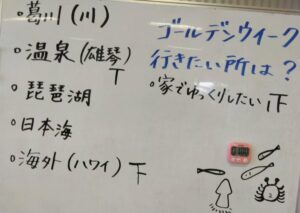 ゴールデンウィーク
行きたい所は?
。葛川(川)
。温泉(雄琴)
下
。琵琶湖
。日本海
。海外(ハワイ) 下
。家でゆっくりしたい 下